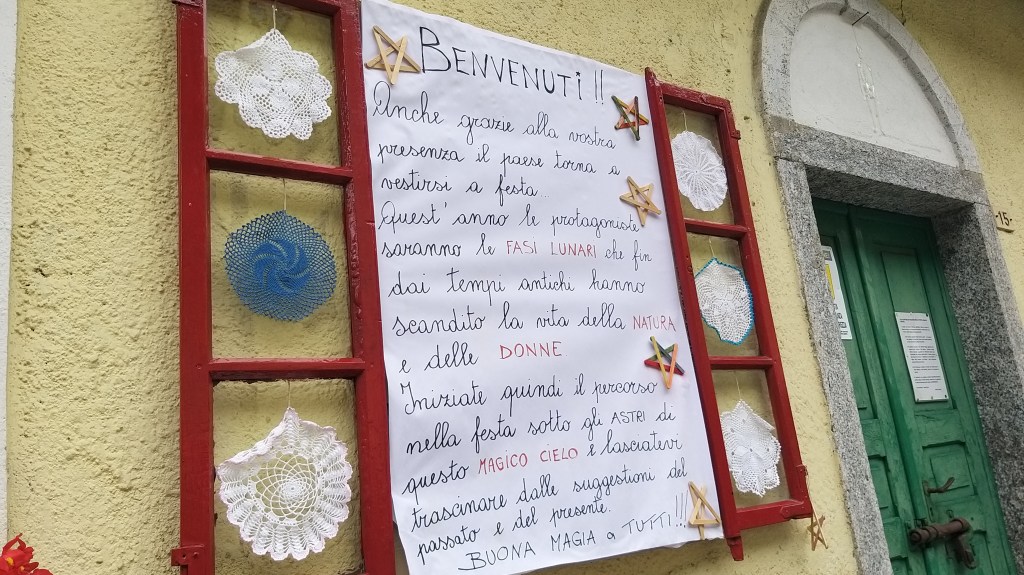 BENVENUTI!!
Anche grazie alla vostra
presenza il paese torna a
vestirsi a festa...
Quest'anno le protagoniste
saranno le FASI LUNARI che fin
dai tempi antichi hanno
scandito la vita della NATURA
e delle DONNE
Iniziate quindi il percorso
nella festa sotto gli ASTRI di
questo MAGICO CIELO e lasciatevi
trascinare dalle suggestioni del
passato e del presente.
BUONA MAGIA a TUTTI!!!
15